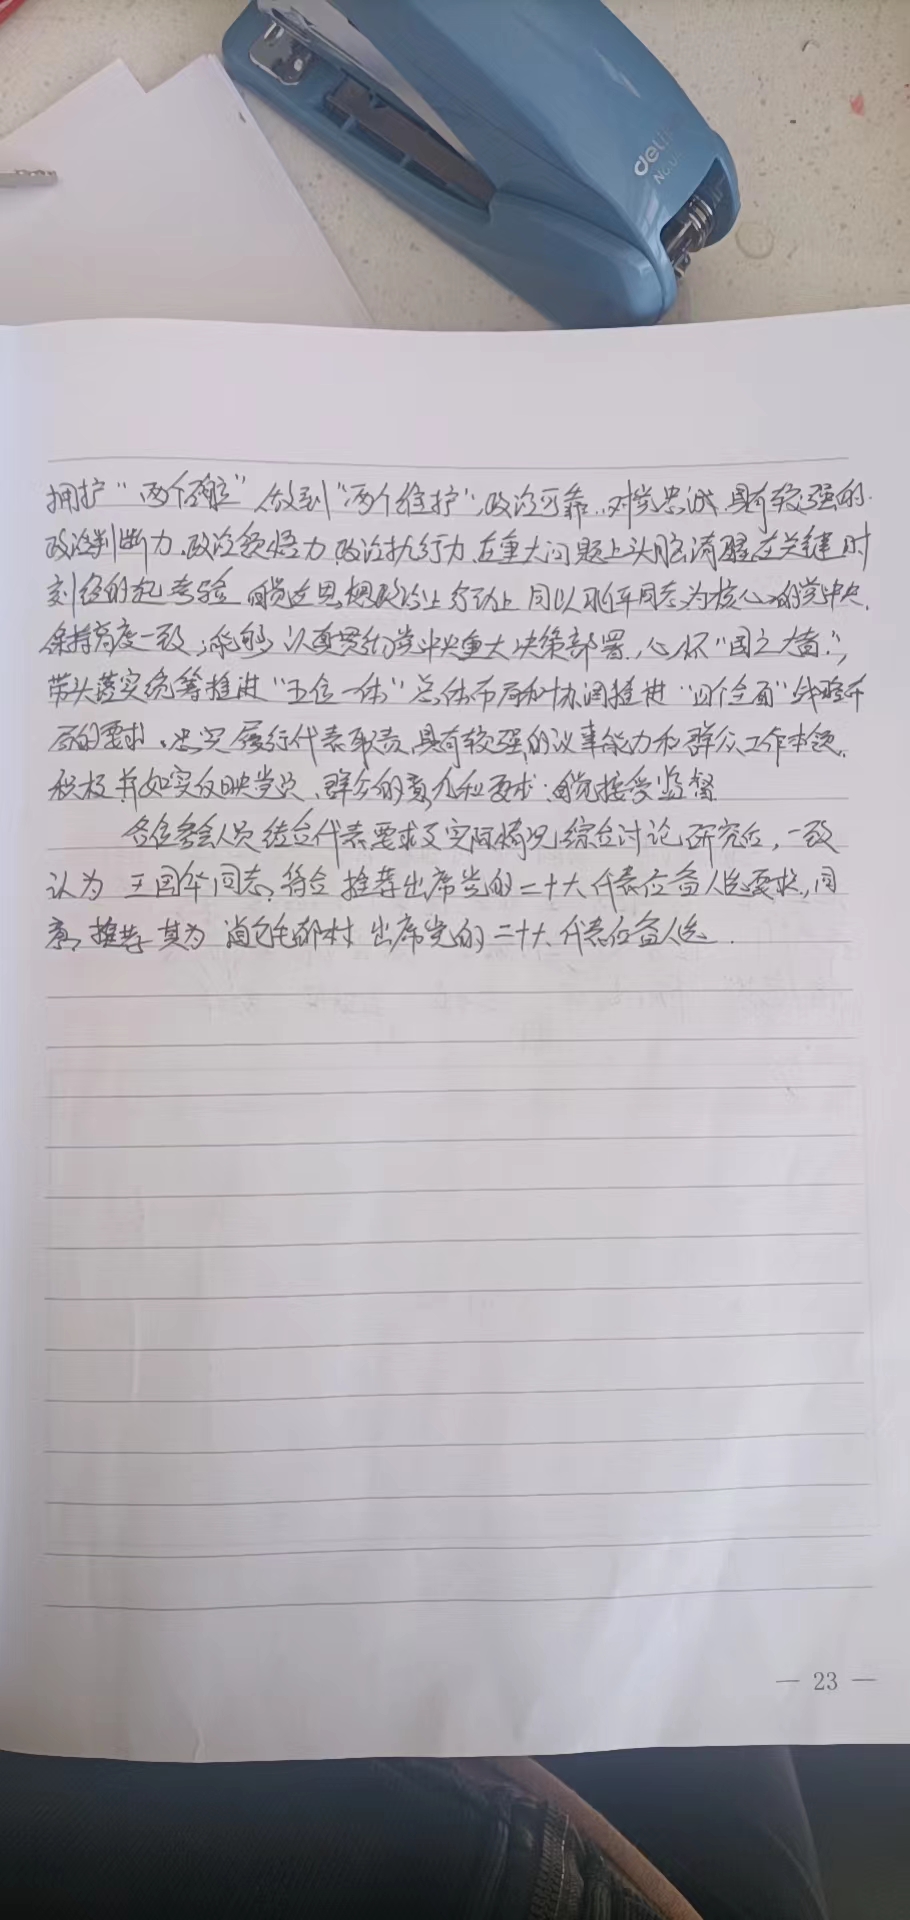 deli
拥护“两个确立”做到“两个维护”,政治可靠,对党忠诚,具有较强的
政治判断力、政治领悟力、政治执行力,在重大问题上头脑清醒,在关键时
刻经的起考验,自觉在思想政治上行动上同以习近平同志为核心的党中央
保持高度一致;能够认真贯彻党中央重大决策部署,心怀“国之大者”,
带头落实统筹推进“五位一体”总体布局和协调推进“四个全面”战略布
局的要求,忠实履行代表职责,具有较强的议事能力和群众工作本领,
积极并如实反映党员、群众的意见和要求;自觉接受监督.
各位参会人员结合代表要求及实际情况,综合讨论研究后,一致
认为王国华同志,符合推荐出席党的二十大代表位备人选要求,同
意推荐其为 村出席党的二十大代表位备人选.
— 23 —